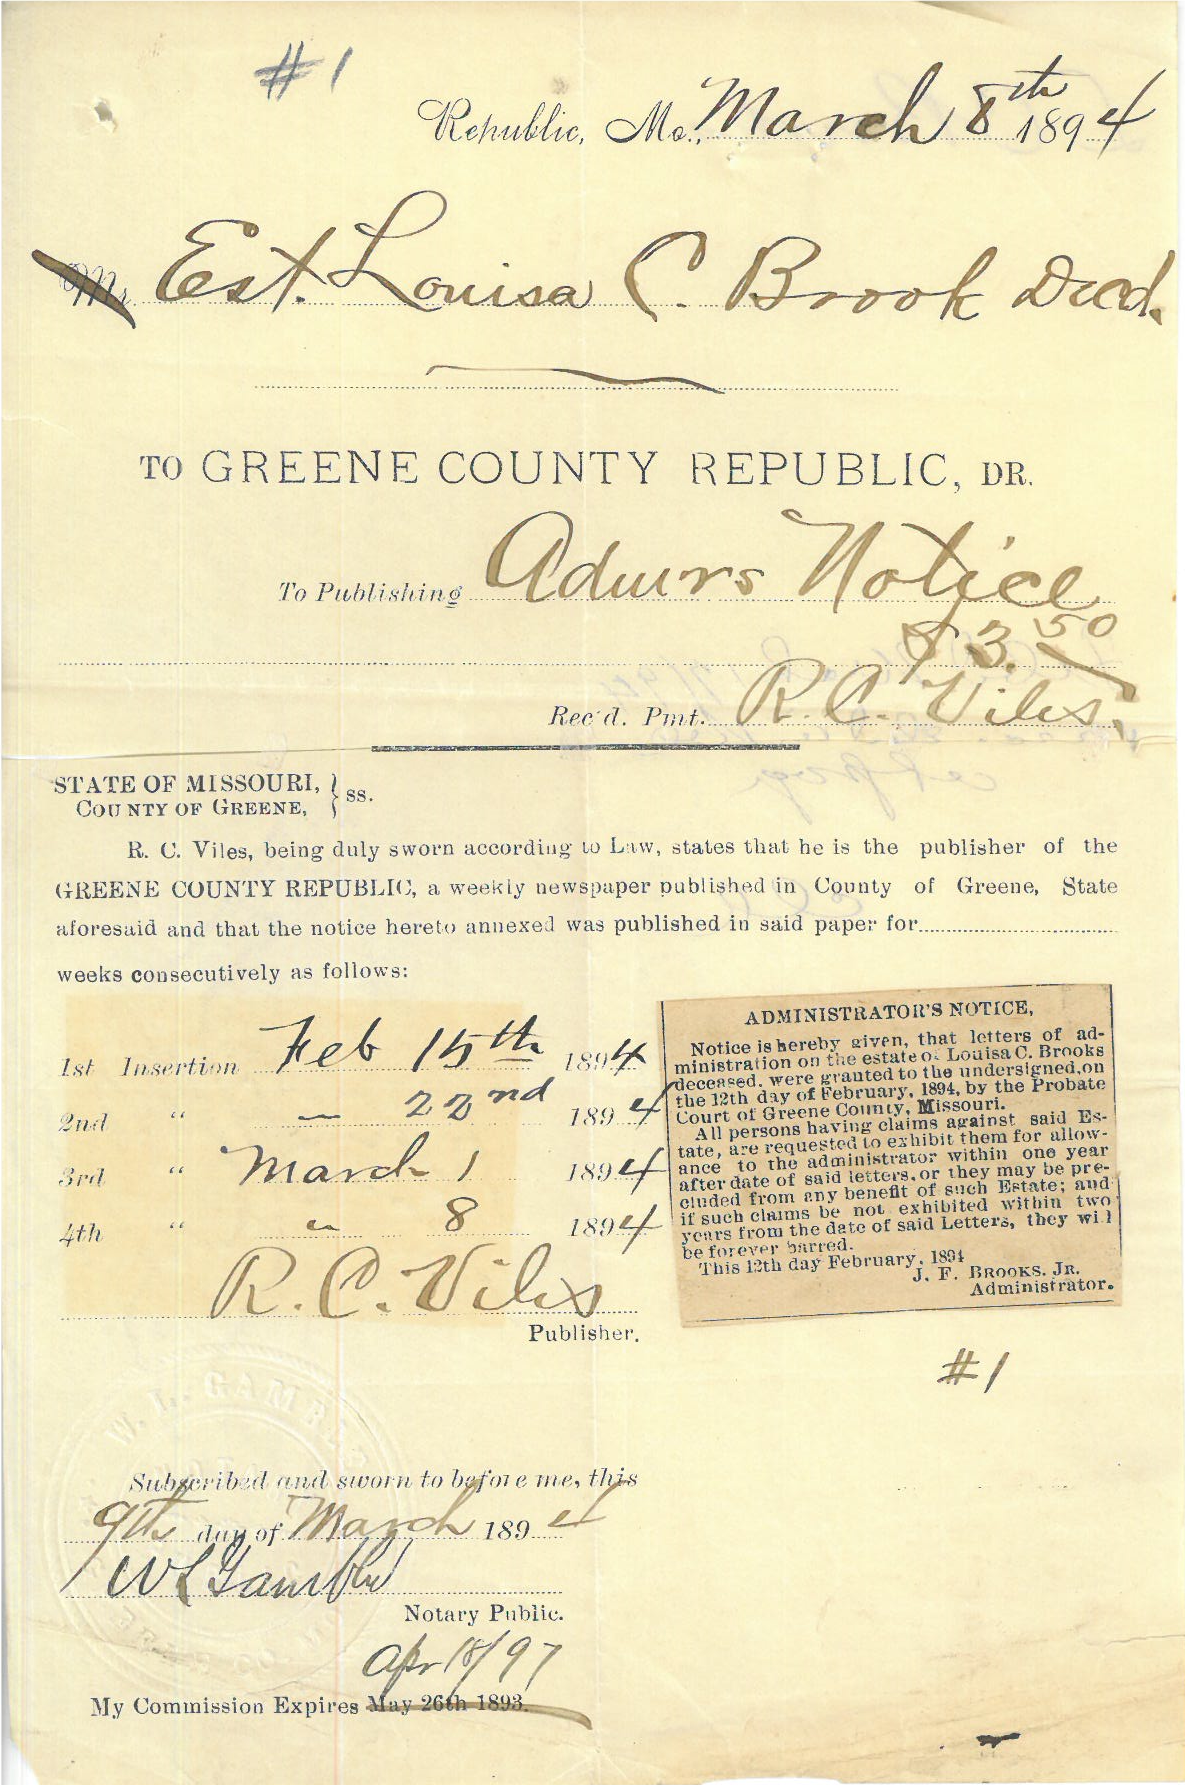 #1
Republic, Mo., March 8th 1894
Mr Est. Louisa C. Brook Decd.
TO GREENE COUNTY REPUBLIC, DR.
To Publishing Admrs Notice
$3.50
Rec'd. Pmt. R. C. Viles.
STATE OF MISSOURI, } ss.
COUNTY OF GREENE,
R. C. Viles, being duly sworn according to Law, states that he is the publisher of the
GREENE COUNTY REPUBLIC, a weekly newspaper published in County of Greene, State
aforesaid and that the notice hereto annexed was published in said paper for
weeks consecutively as follows:
1st Insertion Feb 15th 1894
2nd " — 22nd 1894
3rd " March 1 1894
4th " " 8 1894
R. C. Viles
Publisher.
ADMINISTRATOR'S NOTICE,
Notice is hereby given, that letters of ad-
ministration on the estate o. Louisa C. Brooks
deceased. were granted to the undersigned, on
the 12th day of February, 1894, by the Probate
Court of Greene County, Missouri.
All persons having claims against said Es-
tate, are requested to exhibit them for allow-
ance to the administrator within one year
after date of said letters, or they may be pre-
cluded from any benefit of such Estate; and
if such claims be not exhibited within two
years from the date of said Letters, they will
be forever barred.
This 12th day February, 1894
J. F. BROOKS. JR.
Administrator.
#1
W. L. GAMBLE
Subscribed and sworn to before me, this
9th day of March 1894
W L Gamble
Notary Public.
Apr 18/97
My Commission Expires May 26th 1893.